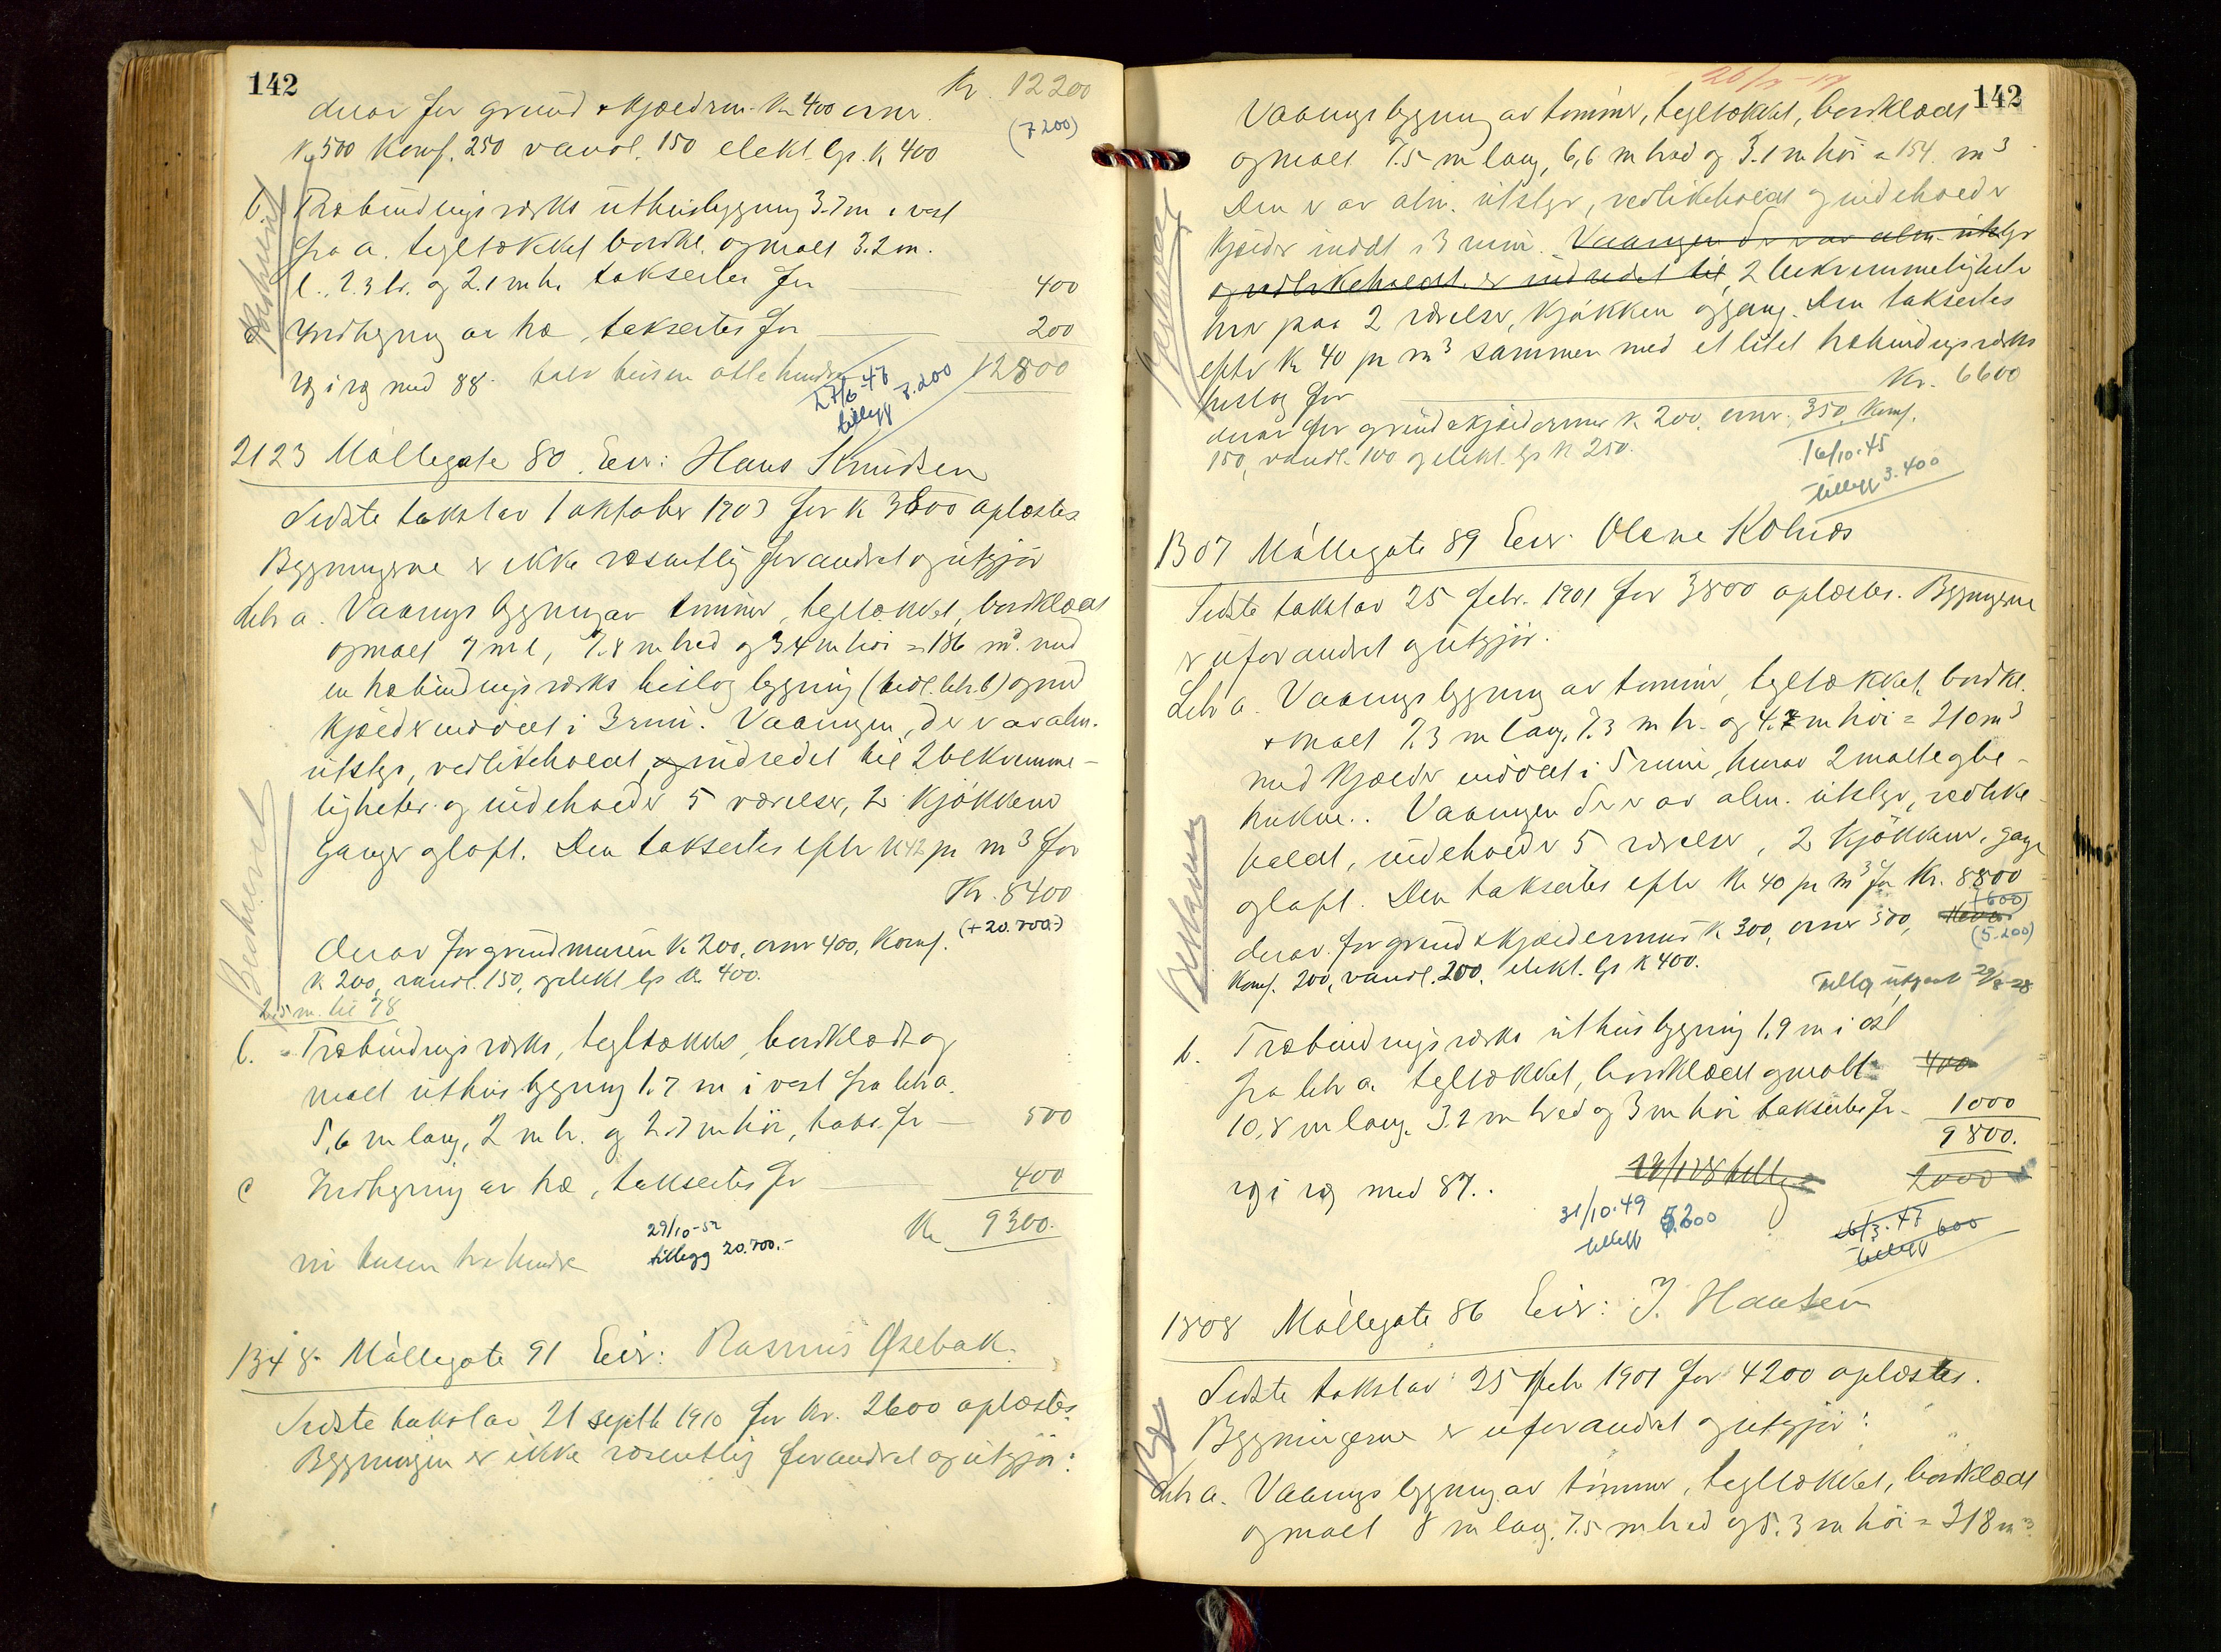 142
Kr. 12200
derav for grund & kjældrm. Kr 400 ovner
(7200)
Kr 500 Komf. 250 vandl. 150 elekt. lys. Kr 400
b. Træbindingsverks uthusbygning 3.7 m i vest
fra a. tegltækket bordkl. og malt 3.2 m.
l., 2.3 br. og 2.1 m h. takseertes for 400
c Indhegning av træ, takseertes for 200
ryg i ryg med 88. tolv tusen otte hundre 12800
27/6-47
tillegg 7.200
2123 Möllegate 80. Eier: Hans Knudsen
Sidste takst av 1 oktober 1903 for Kr 3800 oplæstes
Bygningerne er ikke væsentlig forandret og utgjör
Litr a. Vaanings bygning av tømmer, tegltækket, bordklædt
og malt 7 m l, 7.8 m bred og 3.4 m høi = 186 m3. med
en træbindingsverks bislag bygning (bedl. litr. b) og med
kjælder inddelt i 3 rum. Vaaningen, der er av alm.
utstyr, vedlikeholdt, og indredet til 2 bekvemme-
ligheter og indeholder 5 værelser, 2 kjökkener
ganger og loft. Den takseertes efter Kr 42 pr m3 for
Kr. 8400
(+20.700.-)
derav for grundmuren Kr 200, ovner 400, Komf.
Kr 200, vandl. 150, og elekt lys Kr 400.
2.5 m. til 78
b. Træbindingsverks, tegltækket, bordklædt og
malt uthusbygning 1.7 m i vest fra litr a.
5,6 m lang, 2 m br. og 2.7 m höi, taks. for 500
c Indhegning av træ, takseertes for 400
Kr 9300.
29/10-52
tillegg 20.700.-
ni tusen tre hundre
1348 Möllegate 91 Eier: Rasmus Øsebak.
Sidste takst av 21 septbr 1910 for Kr. 2600 oplæstes.
Bygningen er ikke væsentlig forandret og utgjör:
142
Vaanings bygning av tømmer, tegltækket, bordklædt
og malt 7.5 m lang, 6,6 m bred og 3.1 m höi = 154 m3
Den er av alm. utstyr, vedlikeholdt og indeholder
kjælder inddelt i 3 rum. Vaaningen der er av alm. utstyr
og vedlikeholdt er indredet til 2 bekvemmeligheter
hver paa 2 værelser, kjökken og gang. Den takseertes
efter Kr 40 pr m3 sammen med et litet træbindingsverks
bislag for Kr. 6600
derav for grund & kjældermur Kr 200. ovner. 350, Komf.
150, vandl. 100 og elekt. lys Kr 250.
16/10.45
tillegg 3.400
1307 Möllegate 89 Eier: Olene Kolnes
Sidste takst av 25 febr. 1901 for 3800 oplæstes. Bygningerne
er uforandret og utgjör:
Litr a. Vaanings bygning av tømmer, tegltækket, bordkl.
& malt 7.3 m lang, 7.3 m br. og 4.7 m höi = 210 m3
med kjælder inddelt i 5 rum, hvorav 2 malte og be-
trukne. Vaaningen der er av alm. utstyr, vedlike-
holdt, indeholder 5 værelser, 2 kjökkener, gange
og loft. Den takseertes efter Kr 40 pr m3 for Kr. 8800
(+600)
derav for grund & kjældermur Kr 300, ovner 500,
(5.200)
Komf. 200, vandl. 200, elekt. lys Kr 400.
Tillæg utgaat 29/8-28
b. Træbindingsverks uthusbygning 1.9 m i öst
fra litr a. tegltækket, bordklædt og malt 400
10,8 m lang, 3.2 m bred og 3 m höi takseertes for 1000
9800.
ryg i ryg med 87.
2000
31/10.49
tillegg 5.200
6/3.47
tillegg 600
1308 Möllegate 86 Eier: J. Hansen
Sidste takst av 25 febr 1901 for 4200 oplæstes.
Bygningerne er uforandret og utgjör:
Litr a. Vaanings bygning av tømmer, tegltækket, bordklædt
og malt 8 m lang, 7.5 m bred og 5.3 m höi = 318 m3